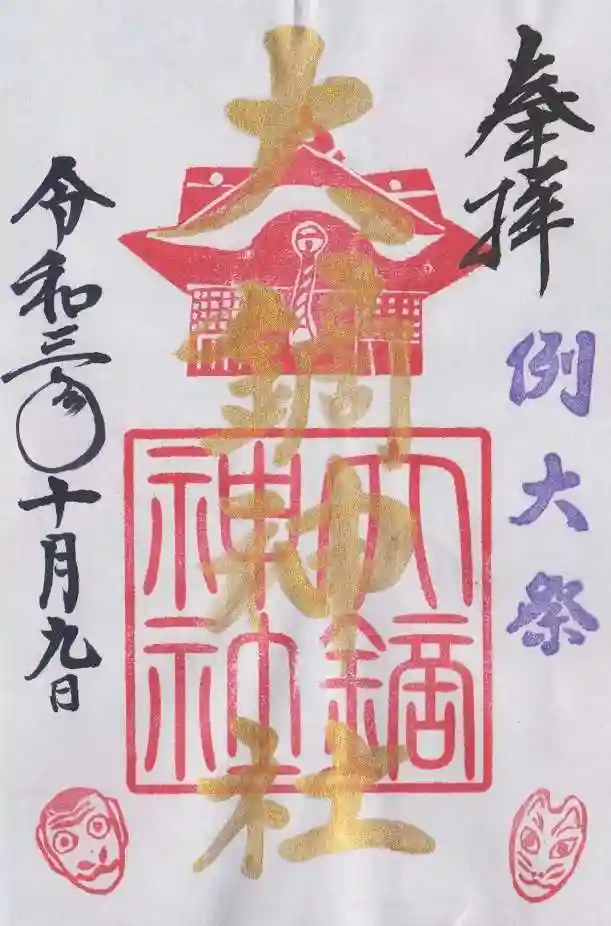 奉拝
例大祭
大鏑神社
大鏑
神社
令和三年十月九日